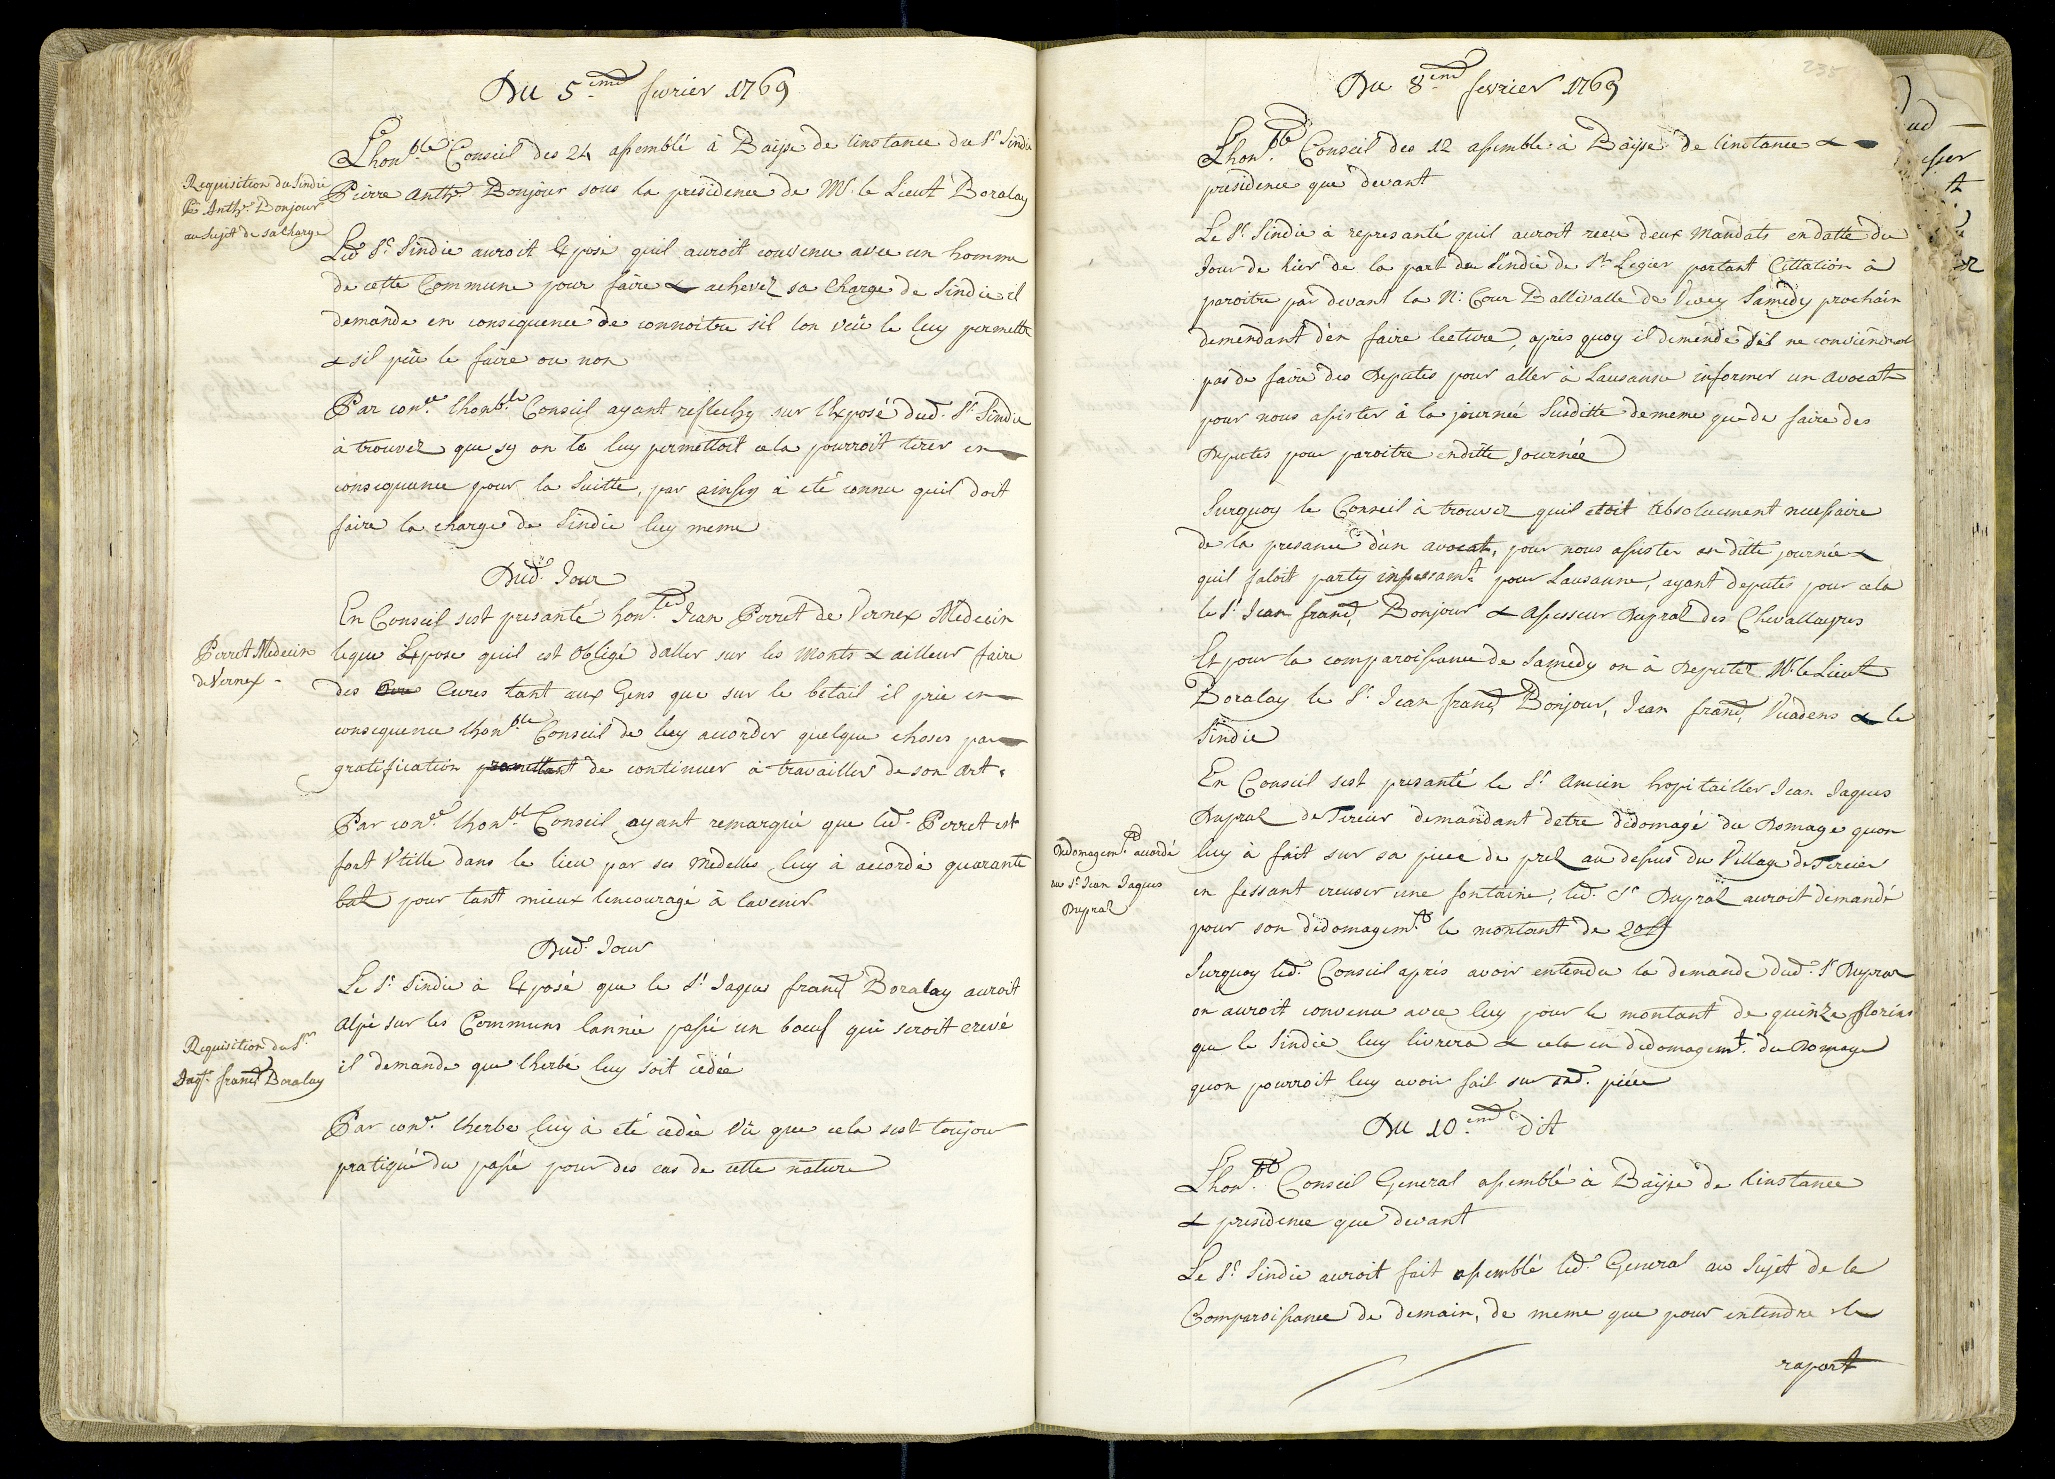 Du 5.eme fevrier 1769
Lhon.ble Conseil des 24 assemblé à Baÿse de linstance du Sr. Sindic
Pierre Anth.e Bonjour sous la presidence de Mr. le Lieut. Doralay
Requisition du Sindic
Pre. Anth.e Bonjour
au Sujet de sa Charge
Led. Sr. Sindic auroit Exposé quil auroit convenu avec un homme
de cette Commune pour faire & achever sa Charge de Sindic il
demande en consequence de connoitre sil lon veu le luy permettre
& sil peu le faire ou non
Par con.ce lhonb.le Conseil ayant reflechy sur lExposé dud. Sr. Sindic
à trouver que sy on le luy permettoit cela pourroit tirer en
consequence pour la Suitte, par ainsy à eté connu quil doit
faire la charge de Sindic luy meme
Dud. Jour
En Conseil sest presanté hon.ble Jean Perret de Vernex Medecin
Perret Medecin
de Vernex -
lequel Expose quil est Obligé daller sur les Monts & ailleur faire
des Cures tant aux Gens que sur le betail il prie en
consequence lhon.ble Conseil de luy accorder quelque choses par
gratification promettant de continuer à travailler de son Art.
Par con.ce lhon.ble Conseil ayant remarqué que led. Perret est
fort Vtille dans le lieu par ses medelles luy à accordé quarante
batz pour tant mieux lencouragé à lavenir
Dud. Jour
Le Sr. Sindic à Exposé que le Sr. Jaques franç. Doralay auroit
Alpé sur les Communs lannée passé un boeuf qui seroit crevé
Requisition du Sr.
Jaq. franç. Doralay
il demande que lherbé luy soit cedée
Par con.ce lherbe luy à eté cedée Vu que cela sest toujour
pratiqué du passé pour des cas de cette nature
235
Du 8.eme fevrier 1769
Lhon.ble Conseil des 12 assemblé à Baÿse de linstance &
presidence que devant
Le Sr. Sindic à represanté quil auroit reçu deux Mandats en datte du
Jour de hier de la part du Sindic de St. Legier portant Cittation à
paroitre par devant la N. Cour Ballivalle de Vevey Samedy prochain
demendant d'en faire lecture, après quoy il demende s'il ne conviendroit
pas de faire des Deputés pour aller à Lausanne informer un Avocat
pour nous assister à la journée Susditte de meme que de faire des
Deputés pour paroitre enditte Journée
Surquoy le Conseil à trouver quil etoit absolument necessaire
de la presance d'un avocat, pour nous assister en ditte journée &
quil faloit party incessam.t pour Lausanne, ayant deputés pour cela
le Sr. Jean franç. Bonjour & Assesseur Dupral des Chevalleyres
Et pour la comparoissance de Samedy on à Deputer Mr. le Lieut.
Doralay le Sr. Jean franç. Bonjour, Jean franç. Vuadens & le
Sindic
En Conseil sest presanté le Sr. Ancien hopitailler Jean Jaques
Dupral de Tercier demandant detre dédomagé du Domage quon
Dedomagem.t accordé
au Sr. Jean Jaques
Dupral
luy à fait sur sa piece de prel au dessus du Village de Tercier
en fessant creuser une fontaine, led. Sr. Dupral auroit demandé
pour son dédomagem.t le montant de 20 ff
Surquoy led. Conseil après avoir entendu la demande dud. Sr. Dupral
on auroit convenu avec luy pour le montant de quinze florins
que le Sindic luy livrera & cela en dedomagem.t du Domage
quon pourroit luy avoir fait sur sad. piéce
Du 10.eme dit
Lhon.ble Conseil General assemblé à Baÿse de linstance
& presidence que devant
Le Sr. Sindic auroit fait assemblé led. General au Sujet de la
Comparoissance de demain, de meme que pour entendre le
raport